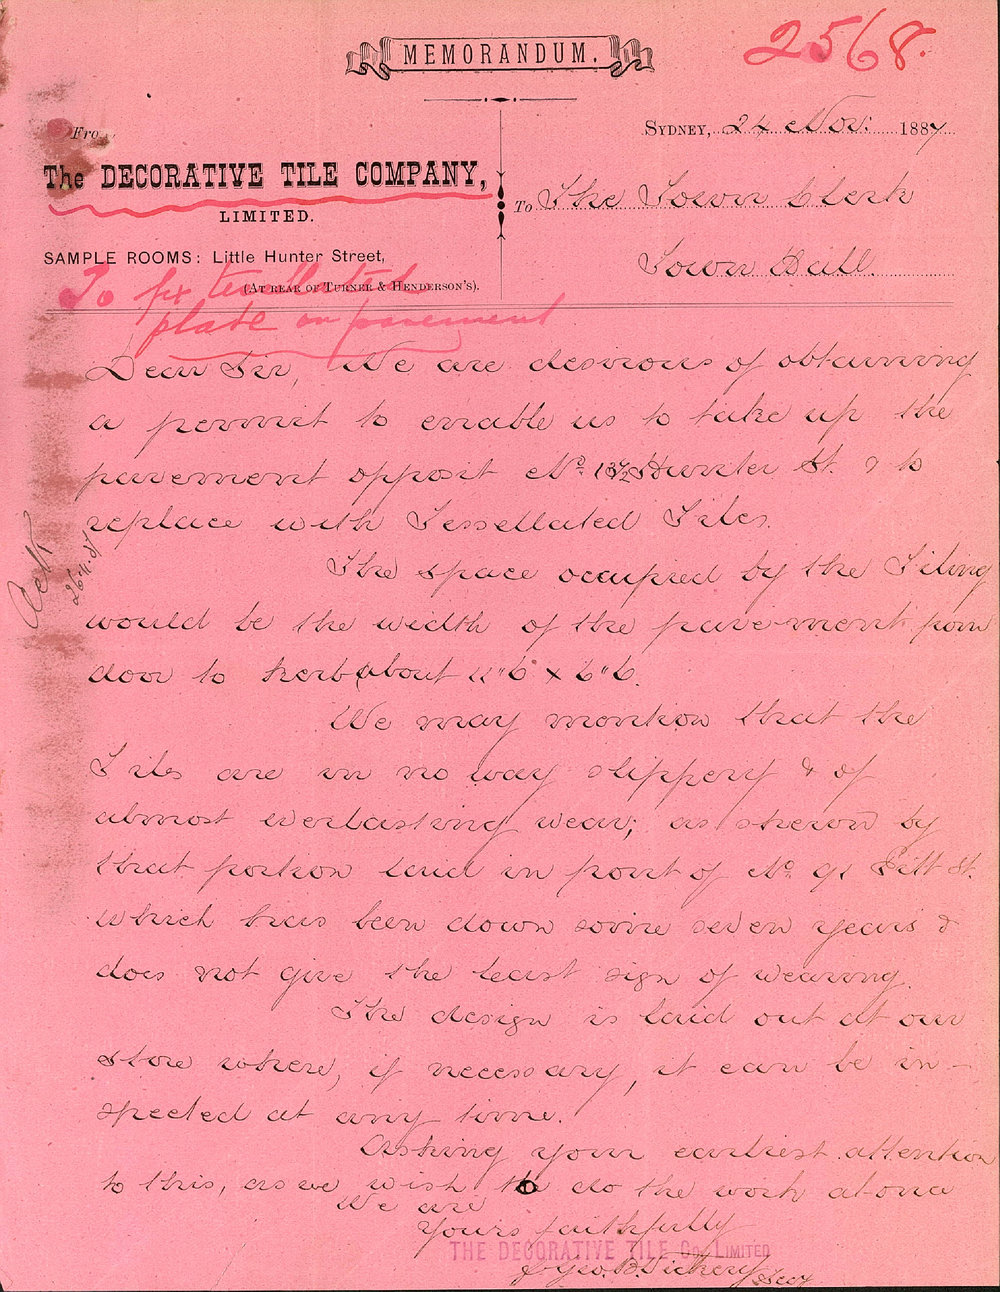 2568.
MEMORANDUM.
From
SYDNEY, 24 Nov. 1887
The DECORATIVE TILE COMPANY,
LIMITED.
To The Town Clerk
Town Hall.
SAMPLE ROOMS: Little Hunter Street,
(AT REAR OF TURNER & HENDERSON'S).
To fix tesellated
plate on pavement
Dear Sir, We are desirous of obtaining
a permit to enable us to take up the
pavement opposit No. 13½ Hunter St. & to
replace with Tessellated Tiles.
The space occupied by the Tiling
would be the width of the pavement from
door to kerb about 11"6 x 6"6.
We may mention that the
Tiles are in no way slippery & of
almost everlasting wear; as shewn by
that portion laid in front of No. 91 Pitt St.
which has been down some seven years &
does not give the least sign of wearing.
The design is laid out at our
store where, if necessary, it can be in-
spected at any time.
Asking your earliest attention
to this, as we wish to do the work at once
We are
Yours faithfully
THE DECORATIVE TILE Co. LIMITED
Geo. B. Dickery Secy
26.11.87